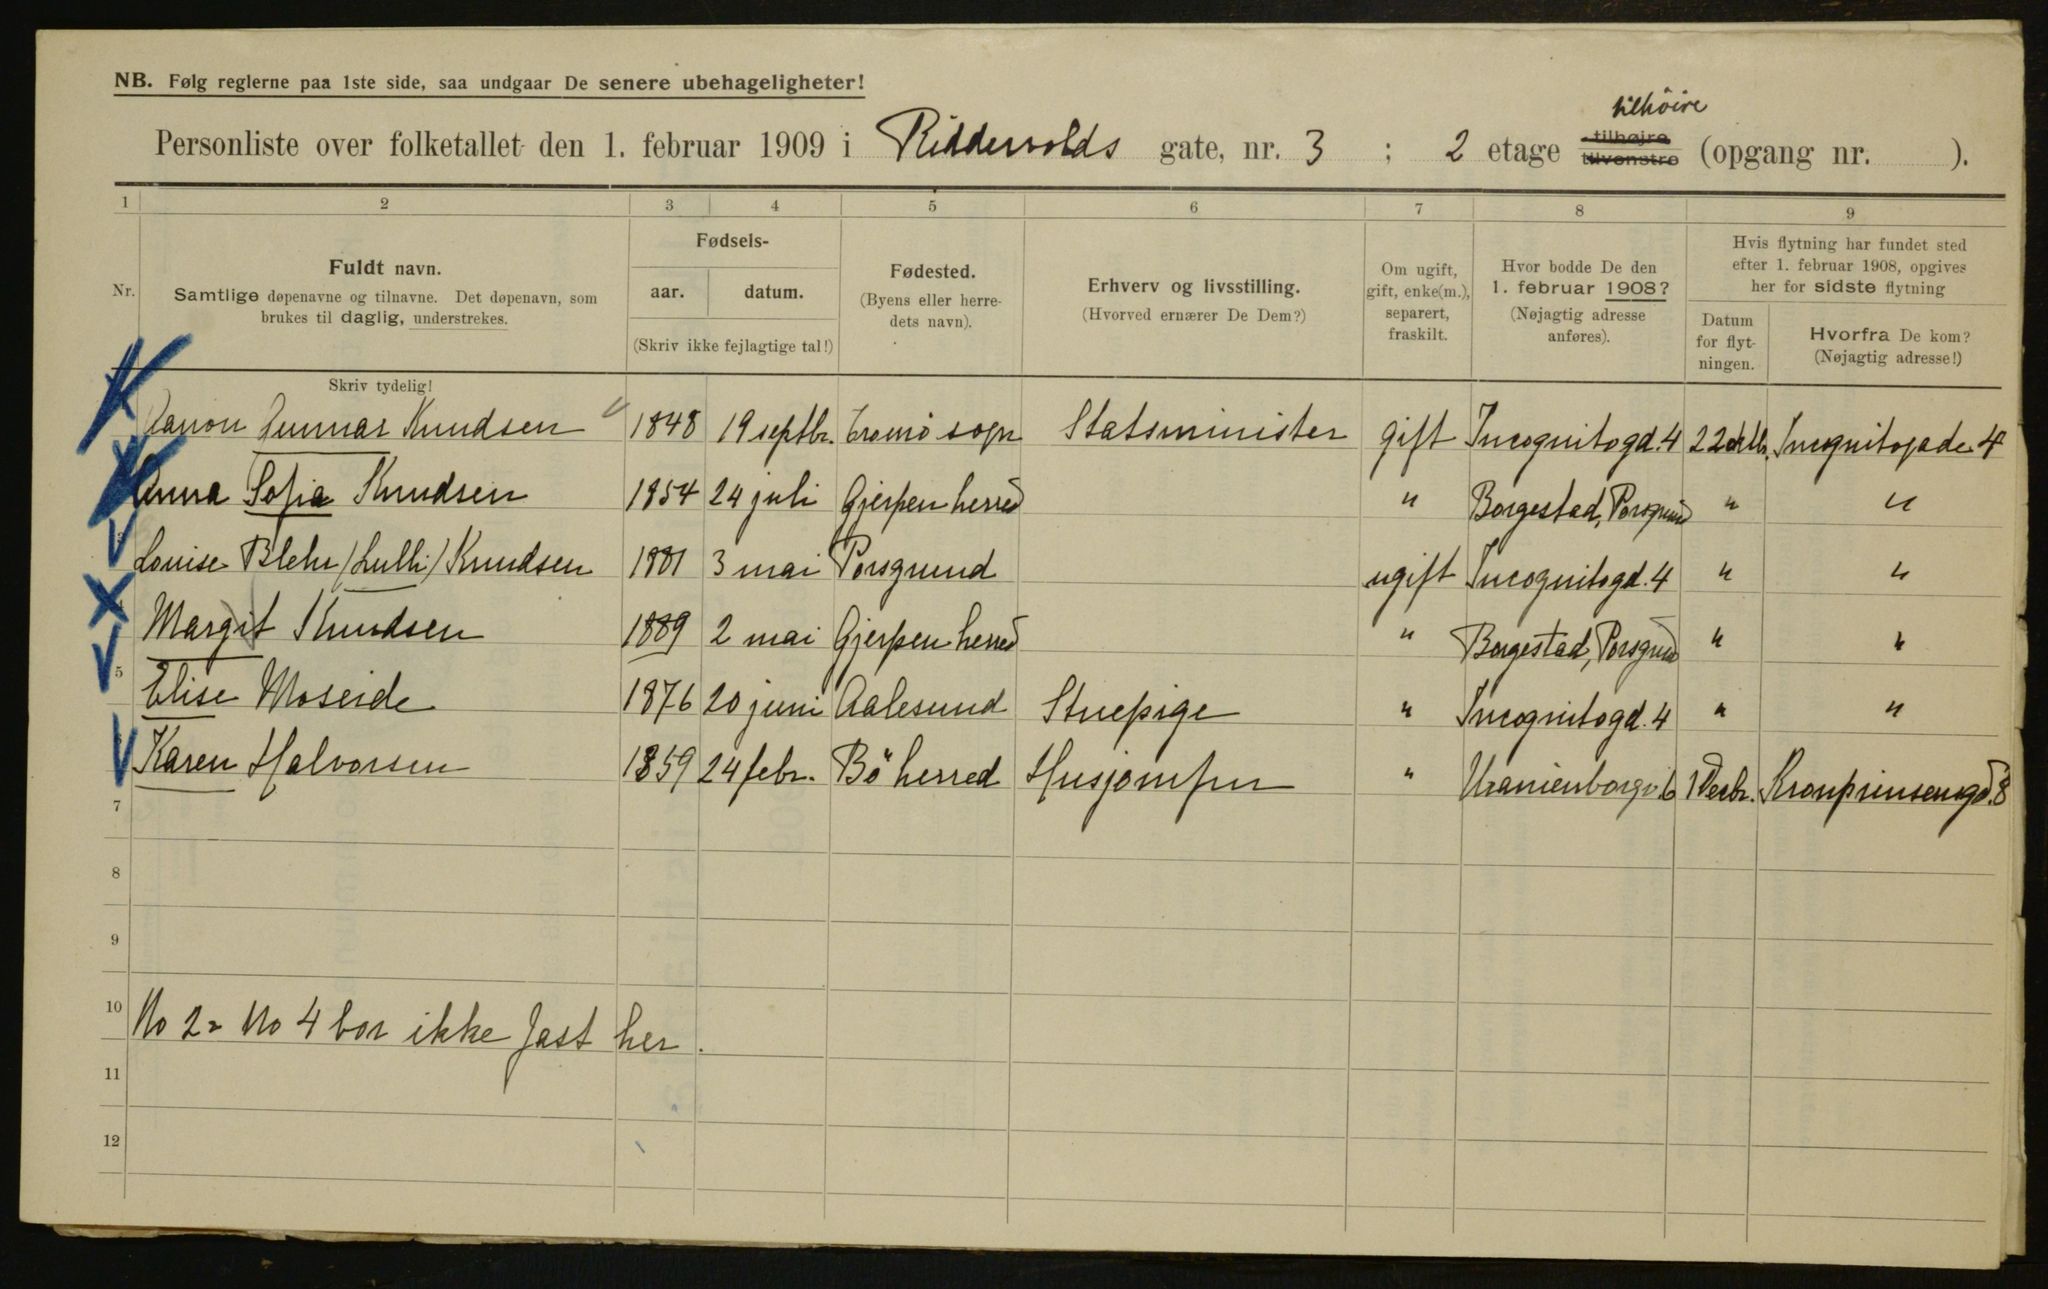 NB. Følg reglerne paa 1ste side, saa undgaar De senere ubehageligheter!
tilhöire
Personliste over folketallet den 1. februar 1909 i Riddervolds gate, nr. 3 ; 2 etage tilhøjre tilvenstre (opgang nr. ).
1 2 3 4 5 6 7 8 9
Nr.
Fuldt navn.
Samtlige døpenavne og tilnavne. Det døpenavn, som
brukes til daglig, understrekes.
Skriv tydelig!
Fødsels-
aar. datum.
(Skriv ikke fejlagtige tal!)
Fødested.
(Byens eller herre-
dets navn).
Erhverv og livsstilling.
(Hvorved ernærer De Dem?)
Om ugift,
gift, enke(m.),
separert,
fraskilt.
Hvor bodde De den
1. februar 1908?
(Nøjagtig adresse
anføres).
Hvis flytning har fundet sted
efter 1. februar 1908, opgives
her for sidste flytning
Datum
for flyt-
ningen.
Hvorfra De kom?
(Nøjagtig adresse!)
Aanon Gunnar Knudsen 1848 19 septbr. Tromö sogn Statsminister gift Incognitogd. 4 22 oktb. Incognitogade 4
Anna Sofia Knudsen 1854 24 juli Gjerpen herred " Borgestad, Porsgrund " "
Louise Blehr /Lulli/ Knudsen 1881 3 mai Porsgrund ugift Incognitogd. 4 " "
Margit Knudsen 1889 2 mai Gjerpen herred " Borgestad, Porsgrund " "
5 Elise Moseide 1876 20 juni Aalesund Stuepige " Incognitogd. 4 " "
6 Karen Halvorsen 1859 24 febr. Bö herred Husjomfru " Uranienborgv. 6 1 Decbr. Kronprinsensgd. 8
7
8
9
10
No 2 = No 4 bor ikke fast her.
11
12